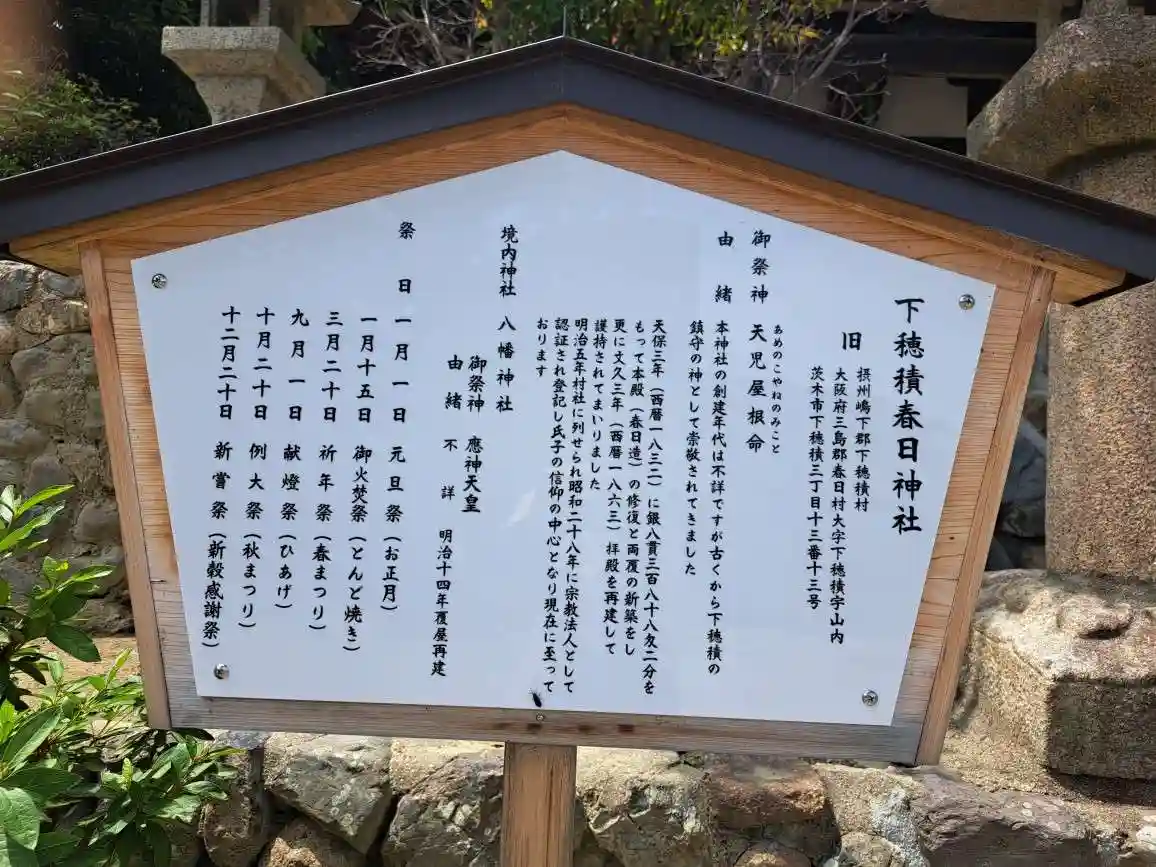 下穂積春日神社
旧
摂州嶋下郡下穂積村
大阪府三島郡春日村大字下穂積字山内
茨木市下穂積三丁目十三番十三号
御祭神 天児屋根命
あめのこやねのみこと
由緒 本神社の創建年代は不詳ですが古くから下穂積の
鎮守の神として崇敬されてきました
天保三年（西暦一八三二）に銀八貫三百八十八匁二分を
もって本殿（春日造）の修復と両覆の新築をし
更に文久三年（西暦一八六三）拝殿を再建して
護持されてまいりました
明治五年村社に列せられ昭和二十八年に宗教法人として
認証され登記し氏子の信仰の中心となり現在に至って
おります
境内神社 八幡神社
御祭神 應神天皇
由緒 不詳 明治十四年覆屋再建
祭日 一月一日 元旦祭（お正月）
一月十五日 御火焚祭（とんど焼き）
三月二十日 祈年祭（春まつり）
九月一日 献燈祭（ひあげ）
十月二十日 例大祭（秋まつり）
十二月二十日 新嘗祭（新穀感謝祭）